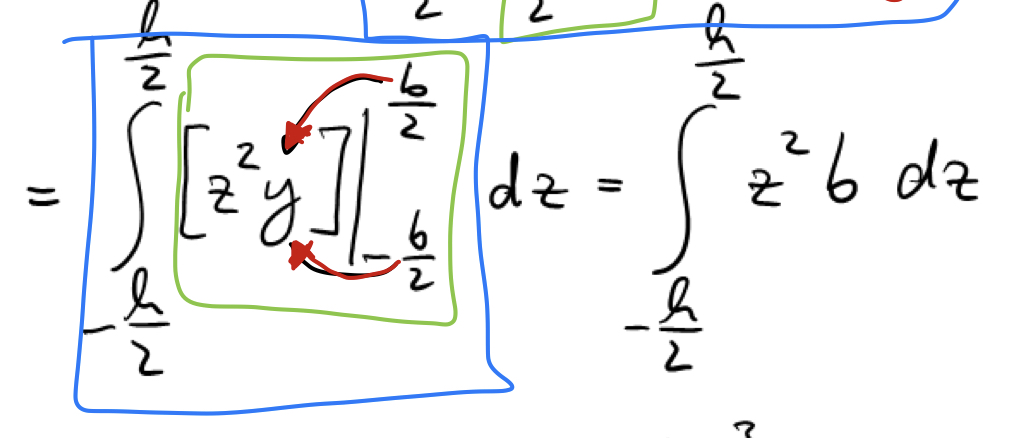 2 2
= ∫_{-h/2}^{h/2} [z² y] |_{-b/2}^{b/2} dz = ∫_{-h/2}^{h/2} z² b dz
3